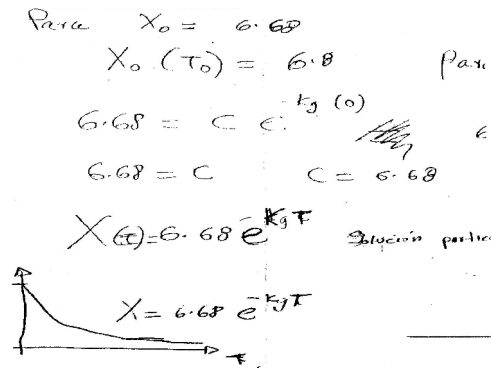 Para X₀ = 6.68
X₀ (T₀) = 6.8
6.68 = C e^-kg (0)
6.68 = C C = 6.68
X(t)=6.68 e^-KgT Solución
X = 6.68 e^-KgT